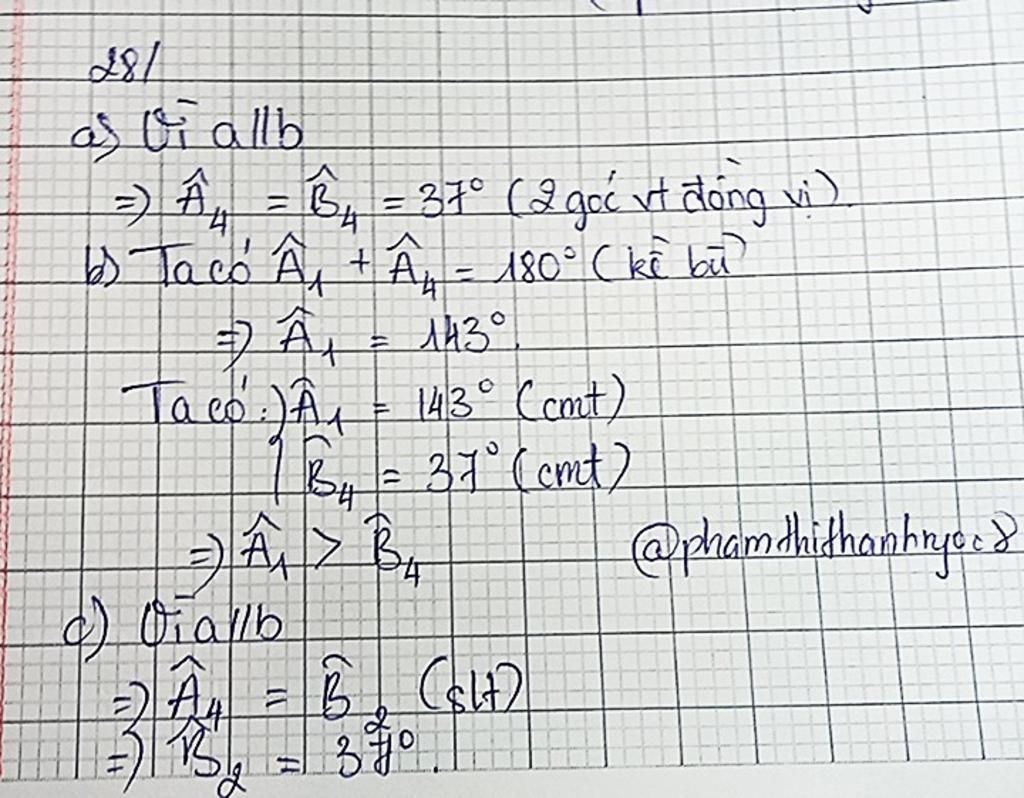 28/
a) Vì a//b
=) Â₄ = B̂₄ = 37° (2 góc vt đồng vị).
b) Ta có Â₁ + Â₄ = 180° (kề bù)
=) Â₁ = 143°.
Ta có: Â₁ = 143° (cmt)
B̂₄ = 37° (cmt)
=) Â₁ > B̂₄
@phamthithanhngoc8
c) Vì a//b
=) Â₄ = B̂₂ (slt)
=) B̂₂ = 37°.